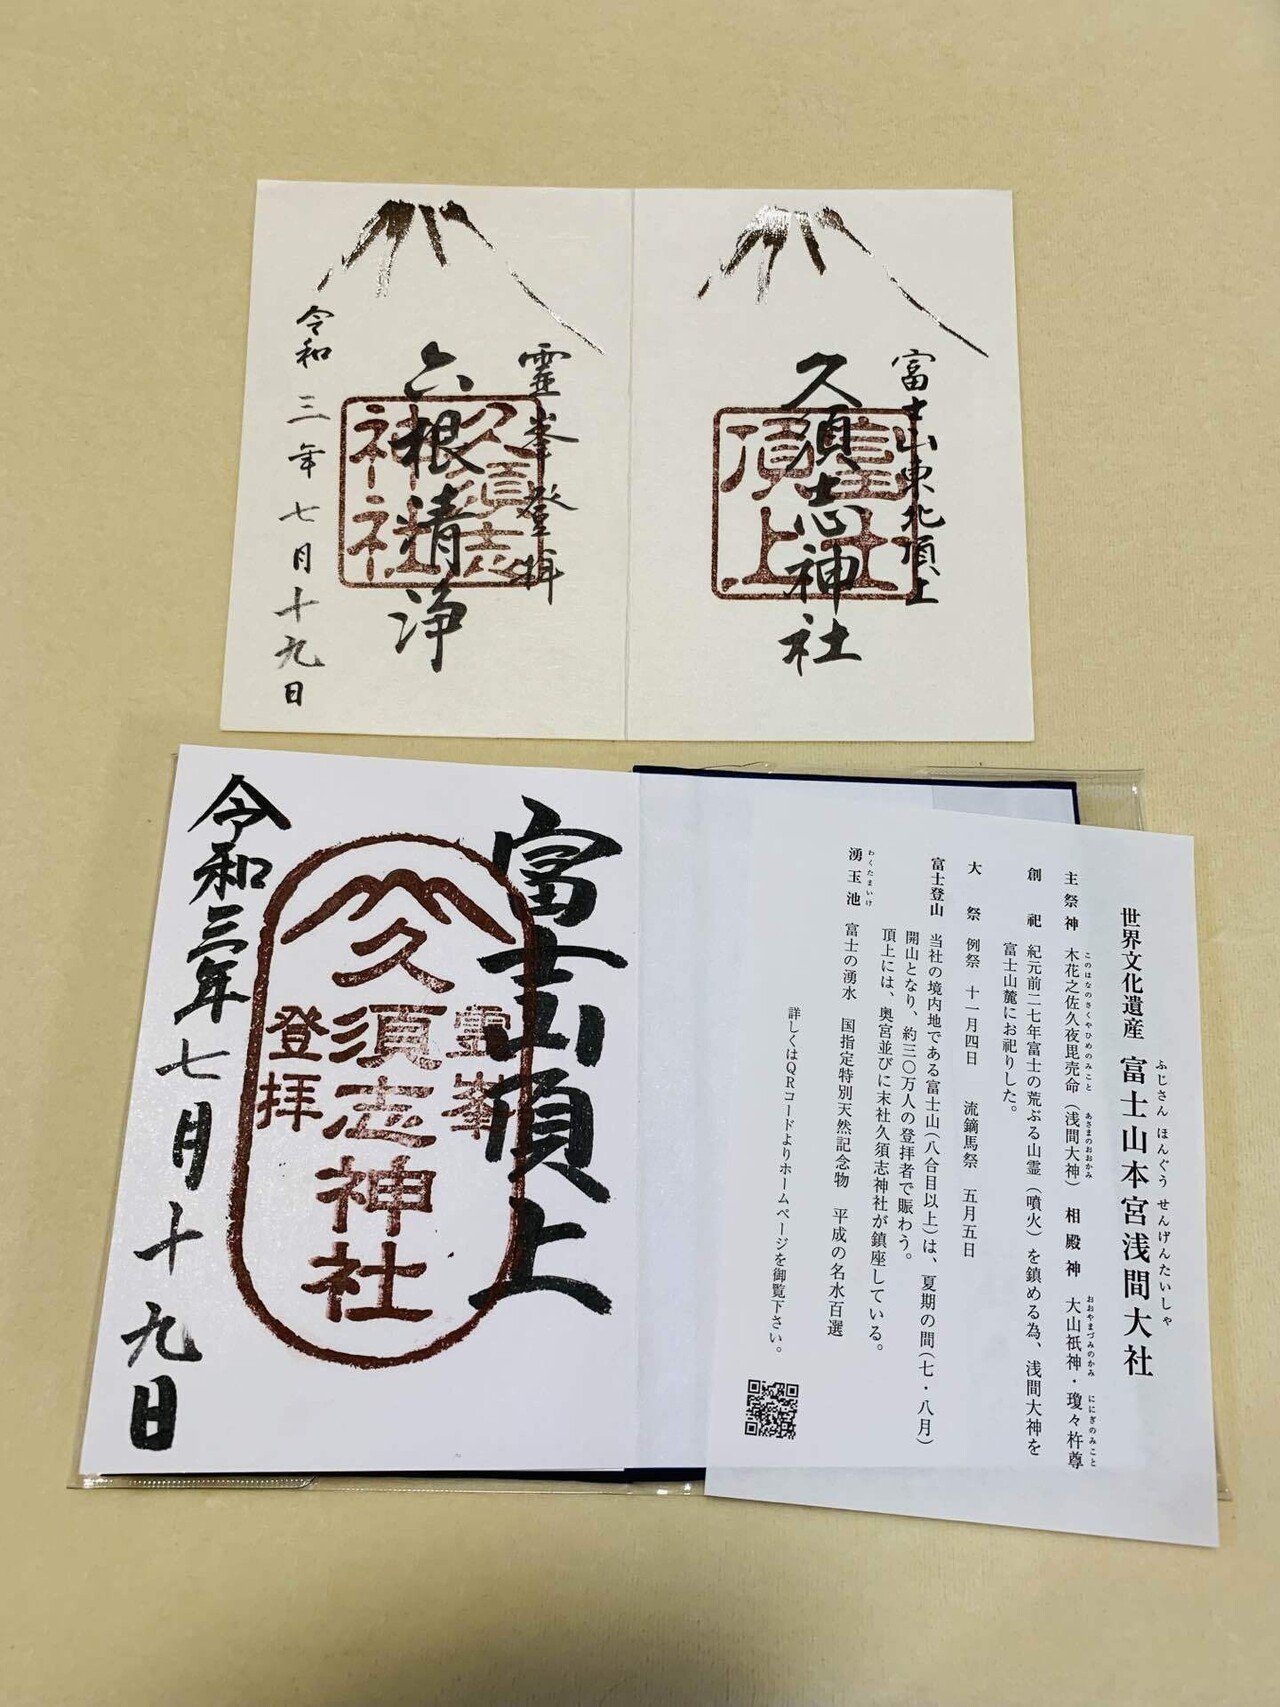 富士山東北頂上
久須志神社
富士山
頂上
霊峯登拝
六根清浄
久須志
神社
令和三年七月十九日
富士山頂上
霊峯
久須志神社
登拝
令和三年七月十九日
世界文化遺産 富士山本宮浅間大社
ふじさん ほんぐう せんげんたいしゃ
主祭神 木花之佐久夜毘売命（浅間大神） 相殿神 大山祇神・瓊々杵尊
このはなのさくやひめのみこと あさまのおおかみ おおやまづみのかみ ににぎのみこと
創祀 紀元前二七年富士の荒ぶる山霊（噴火）を鎮める為、浅間大神を
富士山麓にお祀りした。
大祭 例祭 十一月四日 流鏑馬祭 五月五日
富士登山 当社の境内地である富士山（八合目以上）は、夏期の間（七・八月）
開山となり、約三〇万人の登拝者で賑わう。
頂上には、奥宮並びに末社久須志神社が鎮座している。
湧玉池 富士の湧水 国指定特別天然記念物 平成の名水百選
わくたまいけ
詳しくはQRコードよりホームページを御覧下さい。